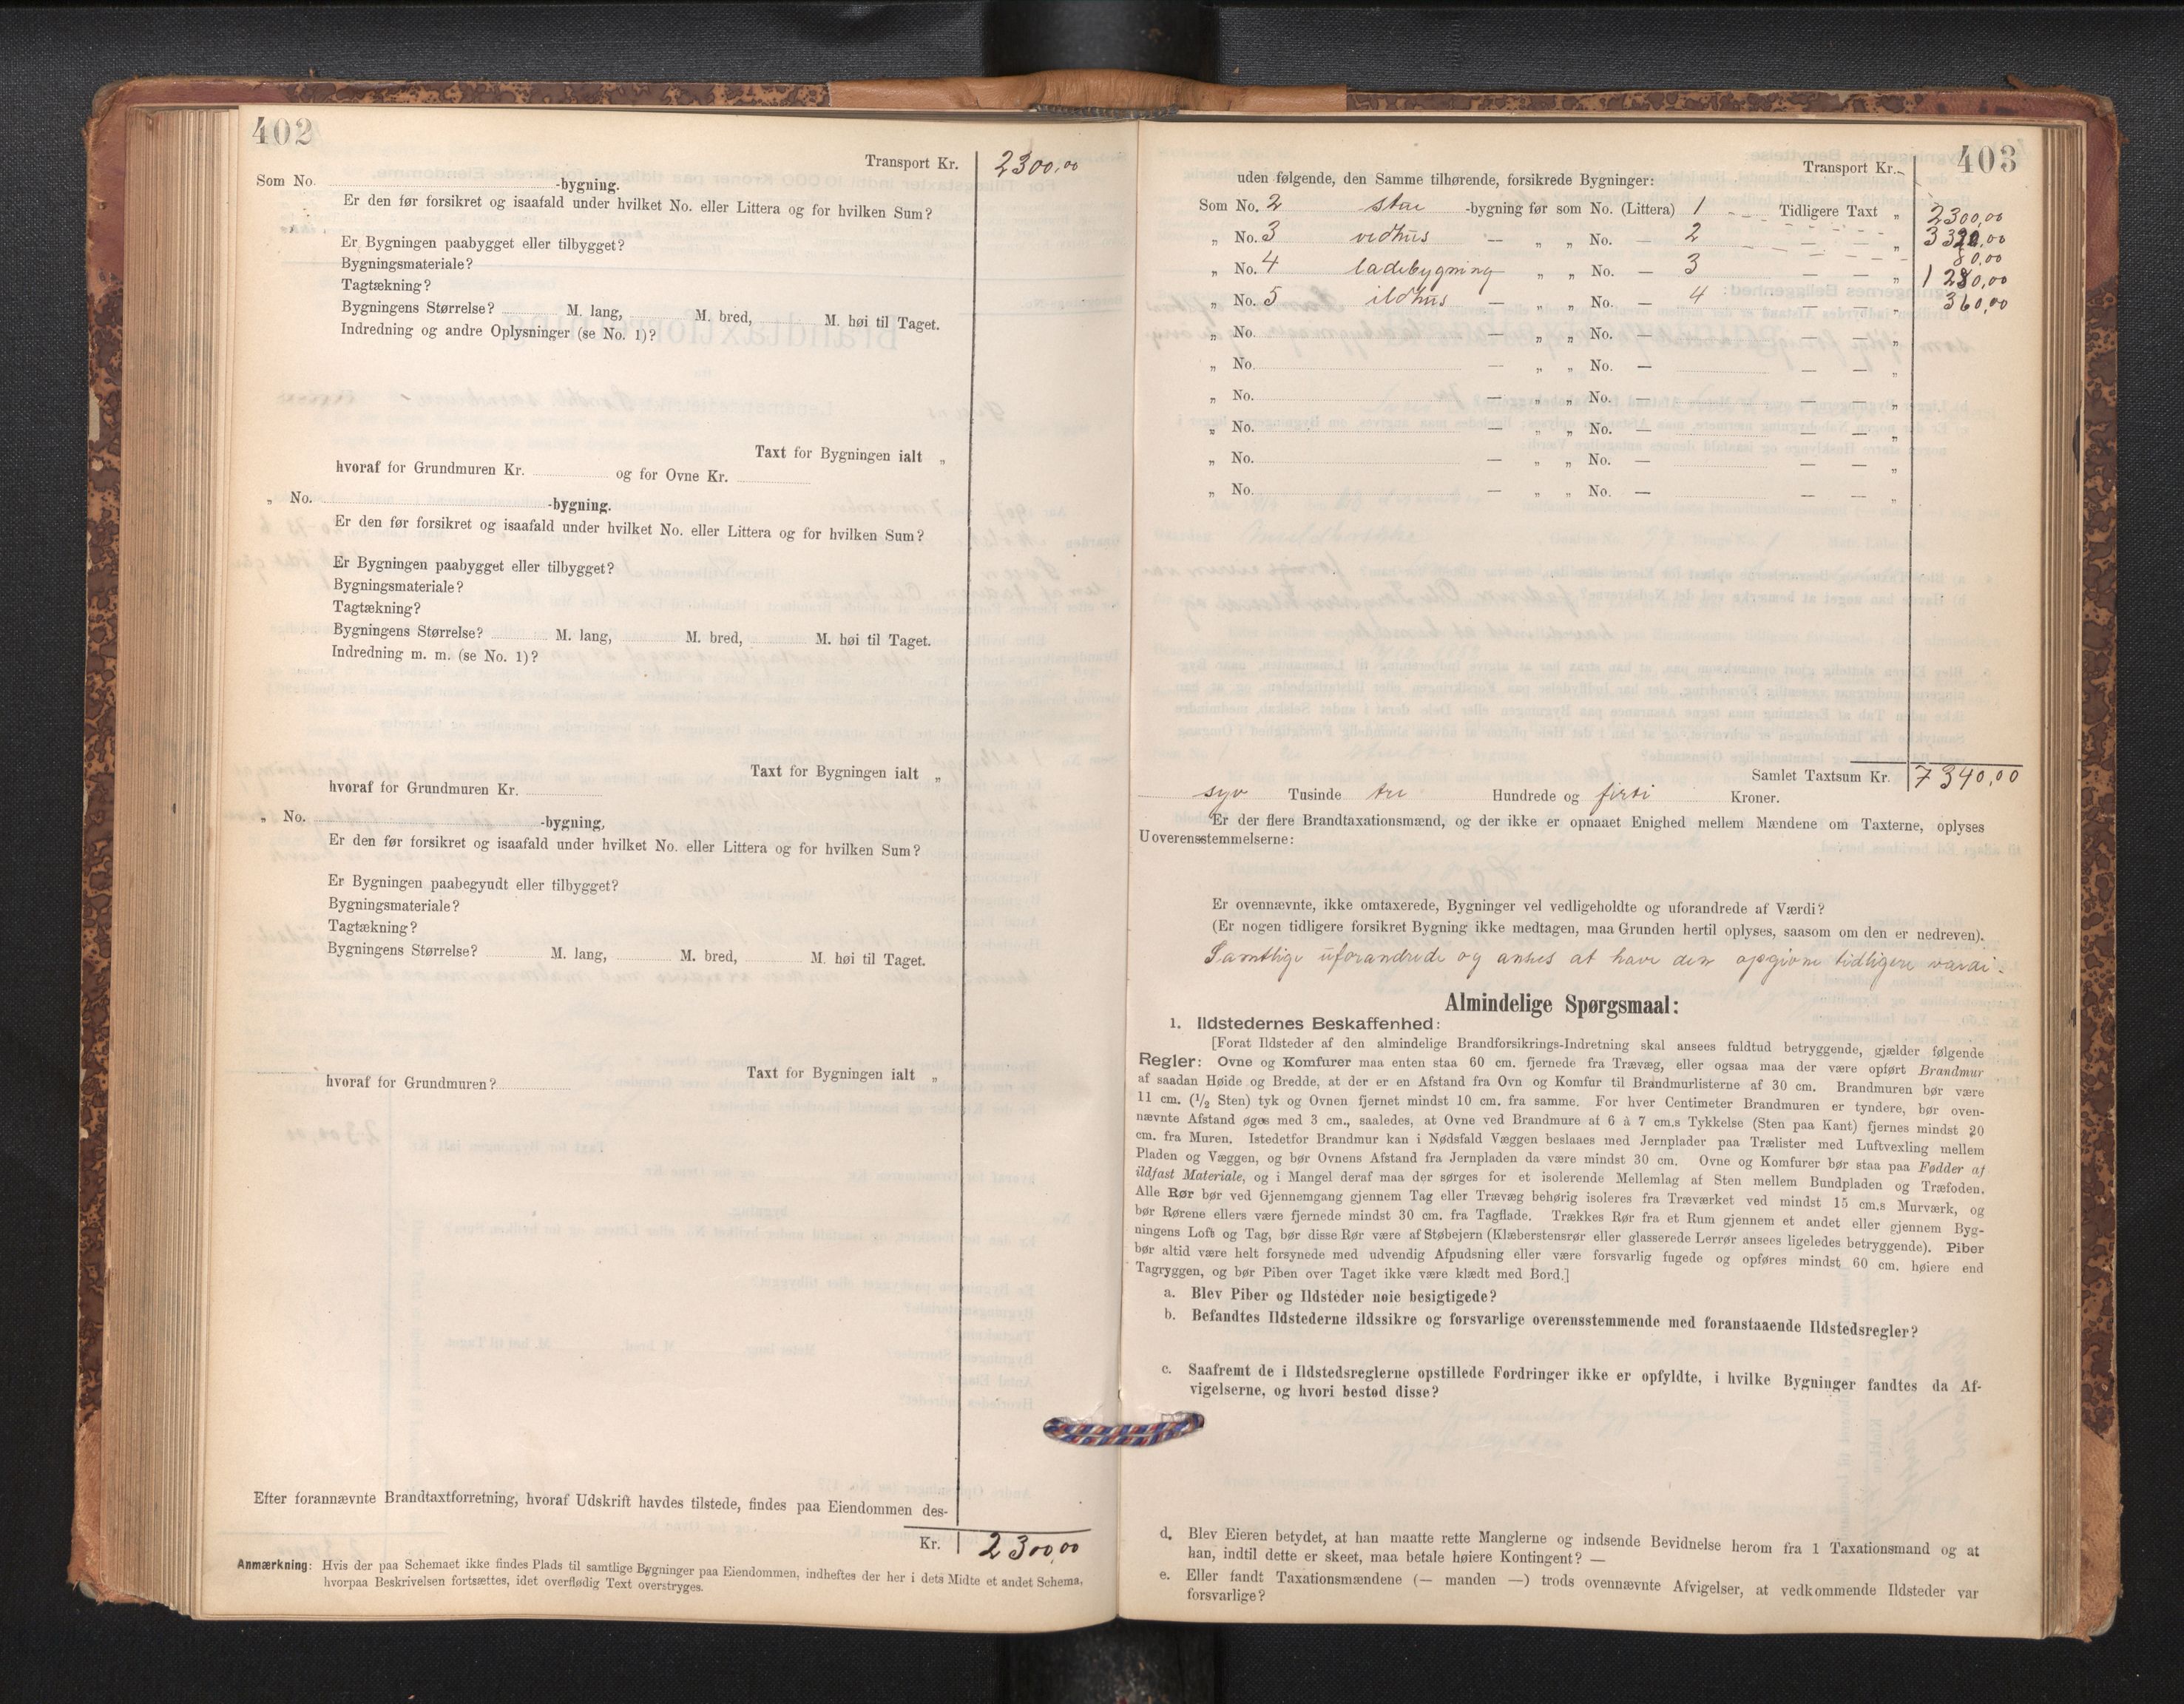 402
Transport Kr. 2300,00
Som No. -bygning.
Er den før forsikret og isaafald under hvilket No. eller Littera og for hvilken Sum?
Er Bygningen paabygget eller tilbygget?
Bygningsmateriale?
Tagtækning?
Bygningens Størrelse? M. lang, M. bred, M. høi til Taget.
Indredning og andre Oplysninger (se No. 1)?
Taxt for Bygningen ialt „
hvoraf for Grundmuren Kr. og for Ovne Kr.
„ No. -bygning.
Er den før forsikret og isaafald under hvilket No. eller Littera og for hvilken Sum?
Er Bygningen paabygget eller tilbygget?
Bygningsmateriale?
Tagtækning?
Bygningens Størrelse? M. lang, M. bred, M. høi til Taget.
Indredning m. m. (se No. 1)?
Taxt for Bygningen ialt „
hvoraf for Grundmuren Kr.
„ No. -bygning,
Er den før forsikret og isaafald under hvilket No. eller Littera og for hvilken Sum?
Er Bygningen paabegyudt eller tilbygget?
Bygningsmateriale?
Tagtækning?
Bygningens Størrelse? M. lang, M. bred, M. høi til Taget.
Taxt for Bygningen ialt „
hvoraf for Grundmuren?
Efter forannævnte Brandtaxtforretning, hvoraf Udskrift havdes tilstede, findes paa Eiendommen des-
Kr. 2300,00
Anmærkning: Hvis der paa Schemaet ikke findes Plads til samtlige Bygninger paa Eiendommen, indheftes der her i dets Midte et andet Schema,
hvorpaa Beskrivelsen fortsættes, idet overflødig Text overstryges.
403
Transport Kr.
uden følgende, den Samme tilhørende, forsikrede Bygninger: 2300,00
Som No. 2 stue -bygning før som No. (Littera) 1 Tidligere Taxt „ 3320,00
„ No. 3 vedhus — „ „ No. — 2 — — „ 80,00
„ No. 4 ladebygning „ „ No. — 3 — — „ 1280,00
„ No. 5 ildhus — „ „ No. — 4 — — „ 360,00
„ No. — „ „ No. — — — „
„ No. — „ „ No. — — — „
„ No. — „ „ No. — — — „
„ No. — „ „ No. — — — „
„ No. — „ „ No. — — — „
„ No. — „ „ No. — — — „
Samlet Taxtsum Kr. 7340,00
syv Tusinde tre Hundrede og firti Kroner.
Er der flere Brandtaxationsmænd, og der ikke er opnaaet Enighed mellem Mændene om Taxterne, oplyses
Uoverensstemmelserne:
Er ovennævnte, ikke omtaxerede, Bygninger vel vedligeholdte og uforandrede af Værdi?
(Er nogen tidligere forsikret Bygning ikke medtagen, maa Grunden hertil oplyses, saasom om den er nedreven).
Samtlige uforandrede og anses at have den opgivne tidligere værdi.
Almindelige Spørgsmaal:
1. Ildstedernes Beskaffenhed:
[Forat Ildsteder af den almindelige Brandforsikrings-Indretning skal ansees fuldtud betryggende, gjælder følgende
Regler: Ovne og Komfurer maa enten staa 60 cm. fjernede fra Trævæg, eller ogsaa maa der være opført Brandmur
af saadan Høide og Bredde, at der er en Afstand fra Ovn og Komfur til Brandmurlisterne af 30 cm. Brandmuren bør være
11 cm. (1/2 Sten) tyk og Ovnen fjernet mindst 10 cm. fra samme. For hver Centimeter Brandmuren er tyndere, bør oven-
nævnte Afstand øges med 3 cm., saaledes, at Ovne ved Brandmure af 6 à 7 cm.s Tykkelse (Sten paa Kant) fjernes mindst 20
cm. fra Muren. Istedetfor Brandmur kan i Nødsfald Væggen beslaaes med Jernplader paa Trælister med Luftvexling mellem
Pladen og Væggen, og bør Ovnens Afstand fra Jernpladen da være mindst 30 cm. Ovne og Komfurer bør staa paa Fødder af
ildfast Materiale, og i Mangel deraf maa der sørges for et isolerende Mellemlag af Sten mellem Bundpladen og Træfoden.
Alle Rør bør ved Gjennemgang gjennem Tag eller Trævæg behørig isoleres fra Træværket ved mindst 15 cm.s Murværk, og
bør Rørene ellers være fjernede mindst 30 cm. fra Tagflade. Trækkes Rør fra et Rum gjennem et andet eller gjennem Byg-
ningens Loft og Tag, bør disse Rør være af Støbejern (Klæberstensrør eller glasserede Lerrør ansees ligeledes betryggende). Piber
bør altid være helt forsynede med udvendig Afpudsning eller være forsvarlig fugede og opføres mindst 60 cm. høiere end
Tagryggen, og bør Piben over Taget ikke være klædt med Bord.]
a. Blev Piber og Ildsteder nøie besigtigede?
b. Befandtes Ildstederne ildssikre og forsvarlige overensstemmende med foranstaaende Ildstedsregler?
c. Saafremt de i Ildstedsreglerne opstillede Fordringer ikke er opfyldte, i hvilke Bygninger fandtes da Af-
vigelserne, og hvori bestod disse?
d. Blev Eieren betydet, at han maatte rette Manglerne og indsende Bevidnelse herom fra 1 Taxationsmand og at
han, indtil dette er skeet, maa betale høiere Kontingent? —
e. Eller fandt Taxationsmændene (— manden —) trods ovennævnte Afvigelser, at vedkommende Ildsteder var
forsvarlige?